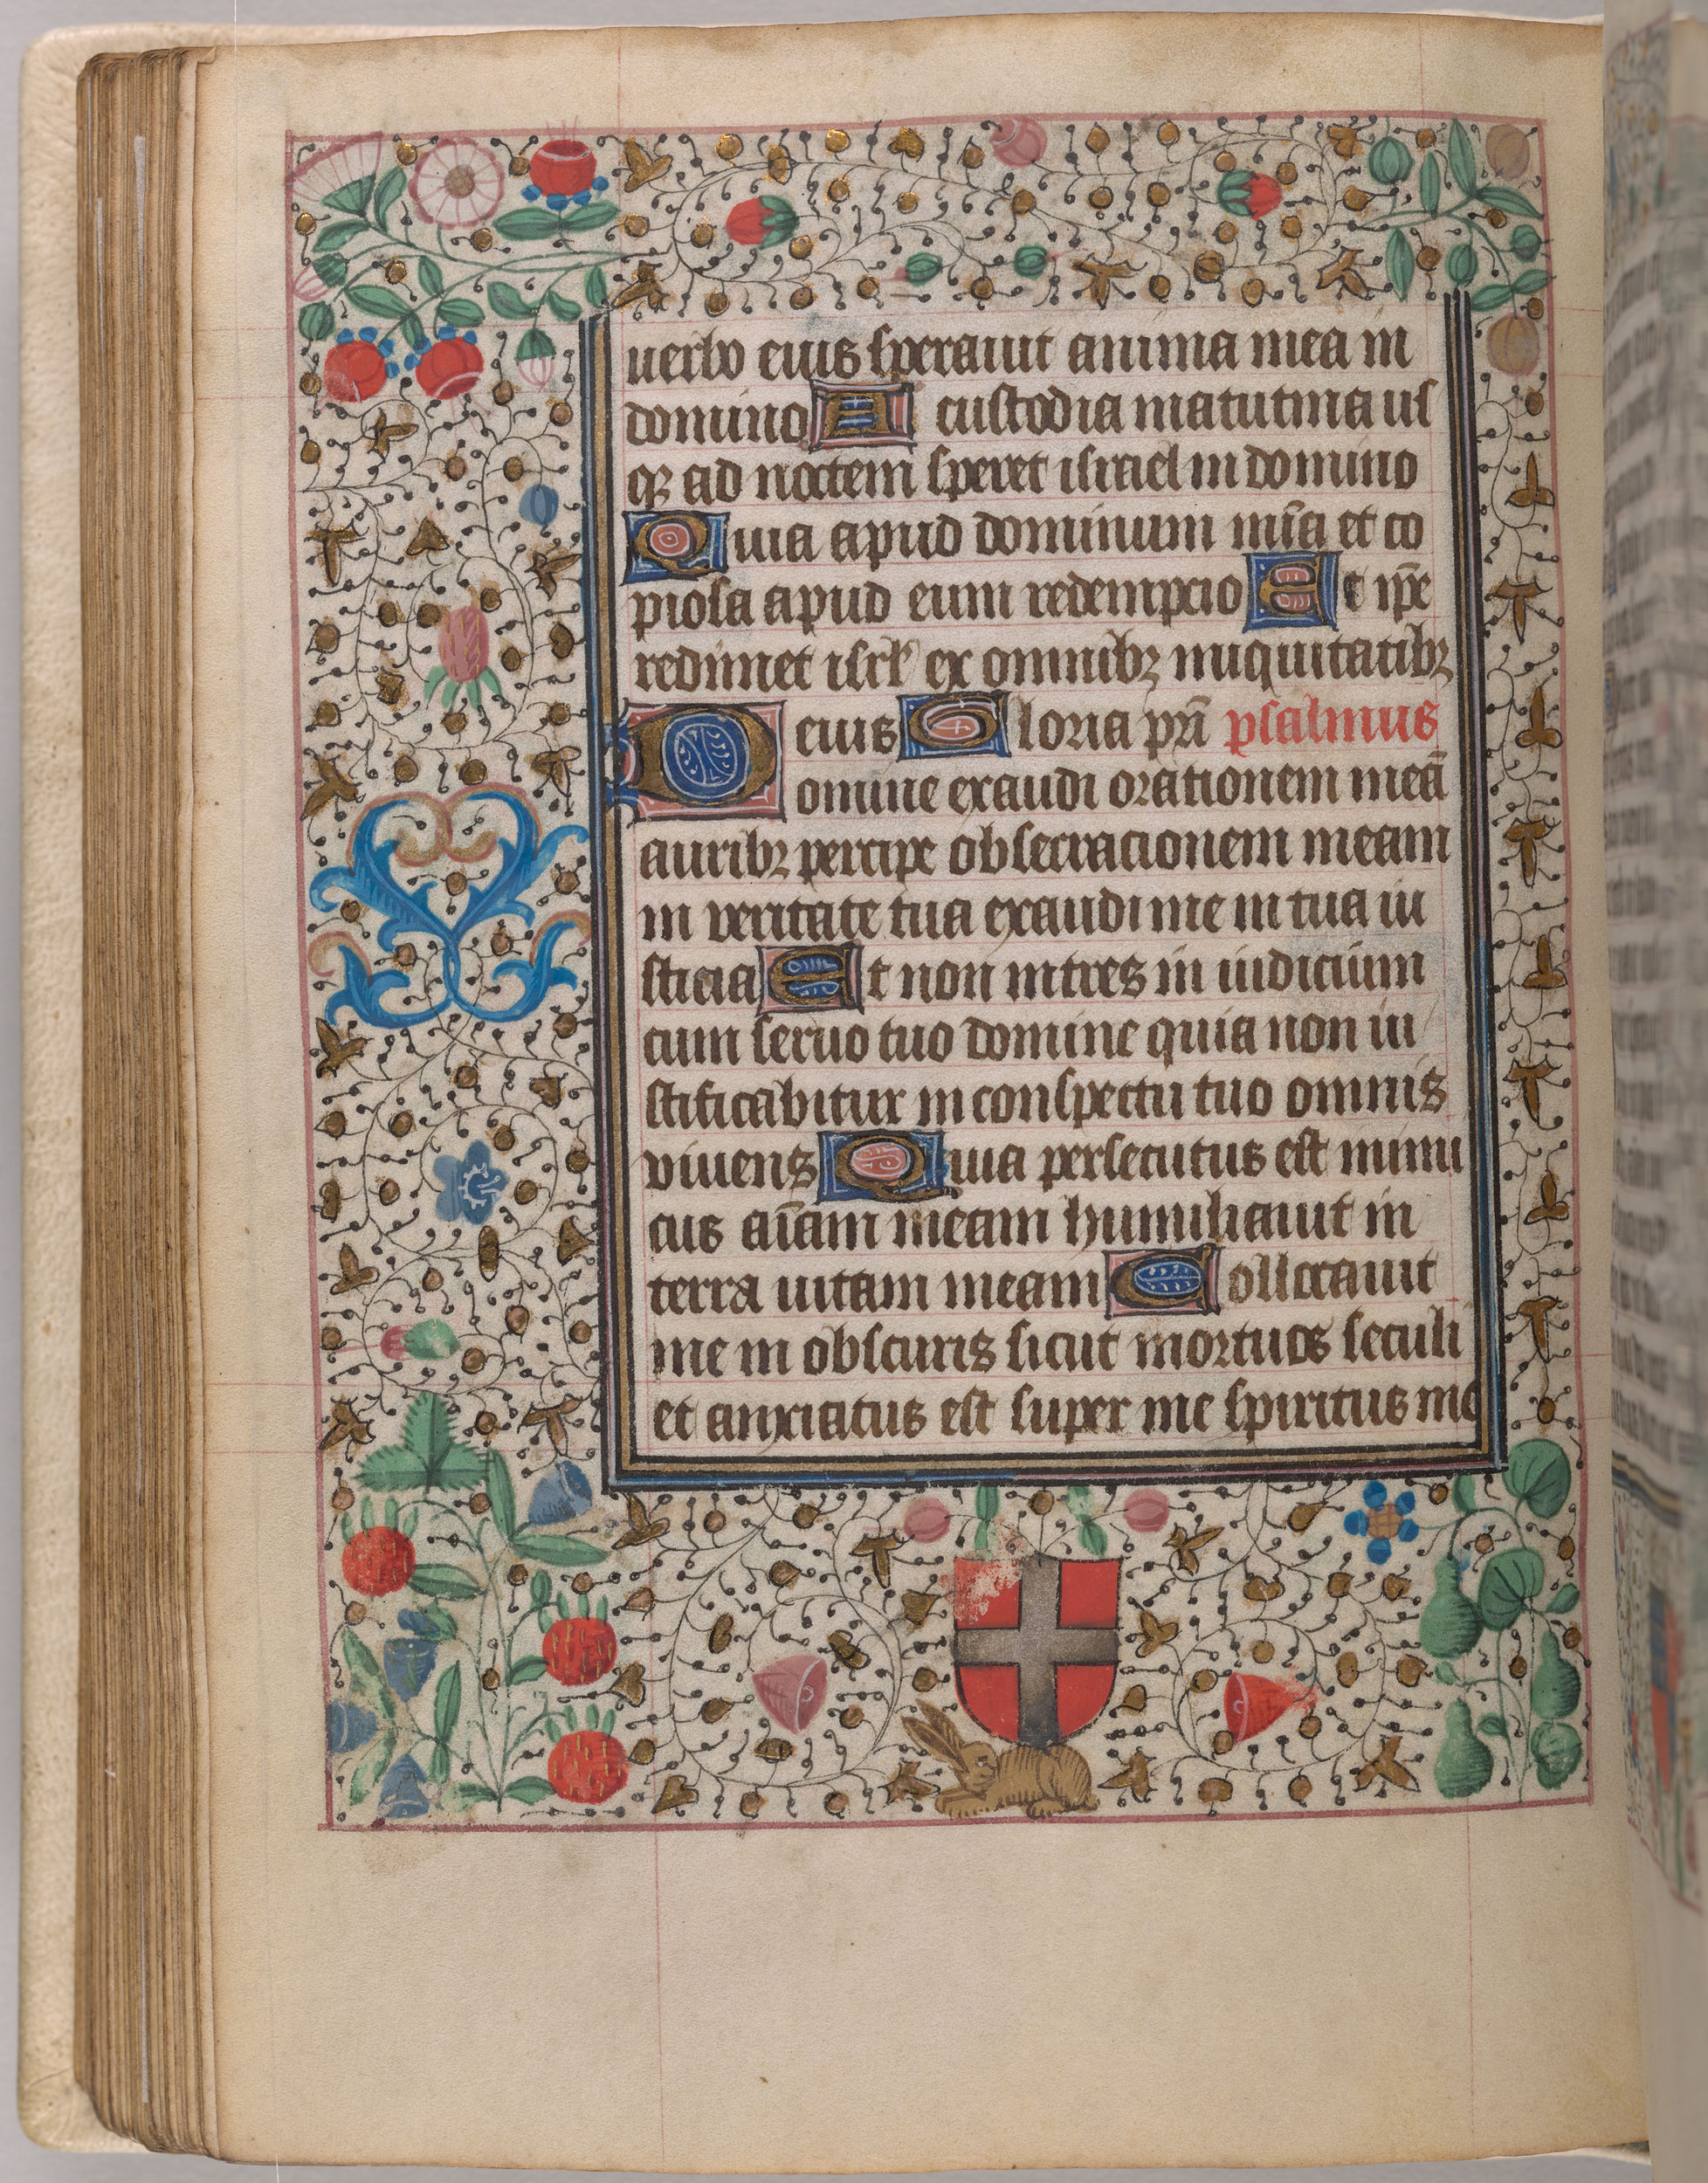 uerbo eius sperauit anima mea in
domino A custodia matutina us
qꝫ ad noctem speret israel in domino
Quia apud dominum mīa et co
piosa apud eum redempcio Et ip̄e
redimet isrl' ex omnibꝫ iniquitatibꝫ
eius Gloria pr̄i psalmus
Domine exaudi orationem meā
auribꝫ percipe obsecracionem meam
in veritate tua exaudi me in tua iu
sticia Et non intres in iudicium
cum seruo tuo domine quia non iu
stificabitur in conspectu tuo omnis
viuens Quia persecutus est inimi
cus aīam meam humiliauit in
terra uitam meam Collocauit
me in obscuris sicut mortuos seculi
et anxiatus est super me spiritus me